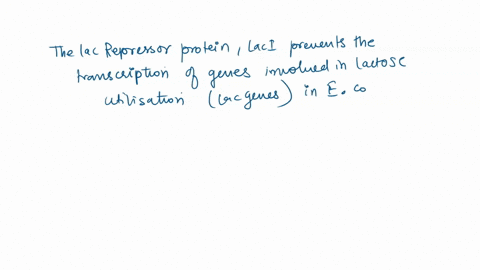 The lac Repressor protein, LacI prevents the
transcription of genes involved in lactose
utilisation (lac genes) in E. co